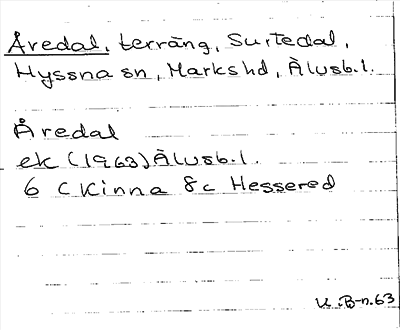 Åredal, terräng, Surtedal,
Hyssna sn, Marks hd, Älvsb.l.
Åredal
ek (1963) Älvsb.l.
6 C Kinna 8c Hessered
U.B-n.63